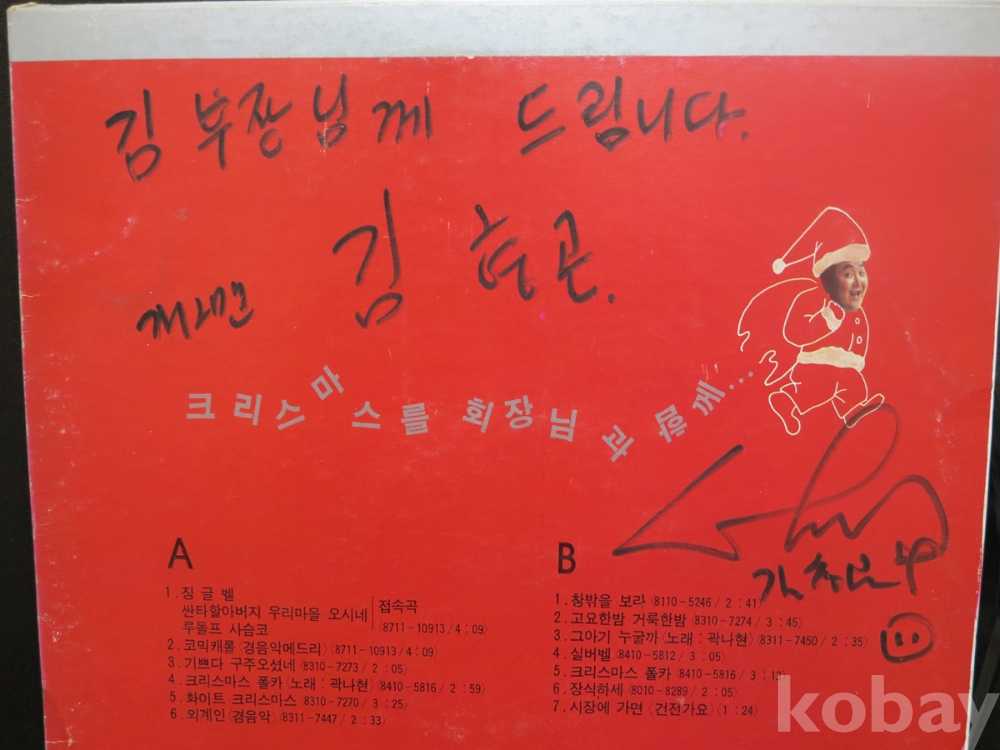 김 부장님께 드립니다.
김
크리스마스를 회장님과 함께...
A
1. 징글벨
싼타할아버지 우리마을 오시네
루돌프 사슴코
접속곡
〈8711-10913/4:09〉
2. 코믹캐롤〈경음악메드리〉〈8711-10913/4:09〉
3. 기쁘다 구주오셨네〈8310-7273/2:05〉
4. 크리스마스 폴카〈노래:곽나현〉〈8410-5816/2:59〉
5. 화이트 크리스마스〈8310-7270/3:25〉
6. 외계인〈경음악〉〈8311-7447/2:33〉
B
1. 창밖을 보라〈8110-5246/2:41〉
2. 고요한밤 거룩한밤〈8310-7274/3:45〉
3. 그아기 누굴까〈노래:곽나현〉〈8311-7450/2:35〉
4. 실버벨〈8410-5812/3:05〉
5. 크리스마스 폴카〈8410-5816/3:13〉
6. 장식하세〈8010-8289/2:05〉
7. 시장에 가면〈건전가요〉〈1:24〉
kobay